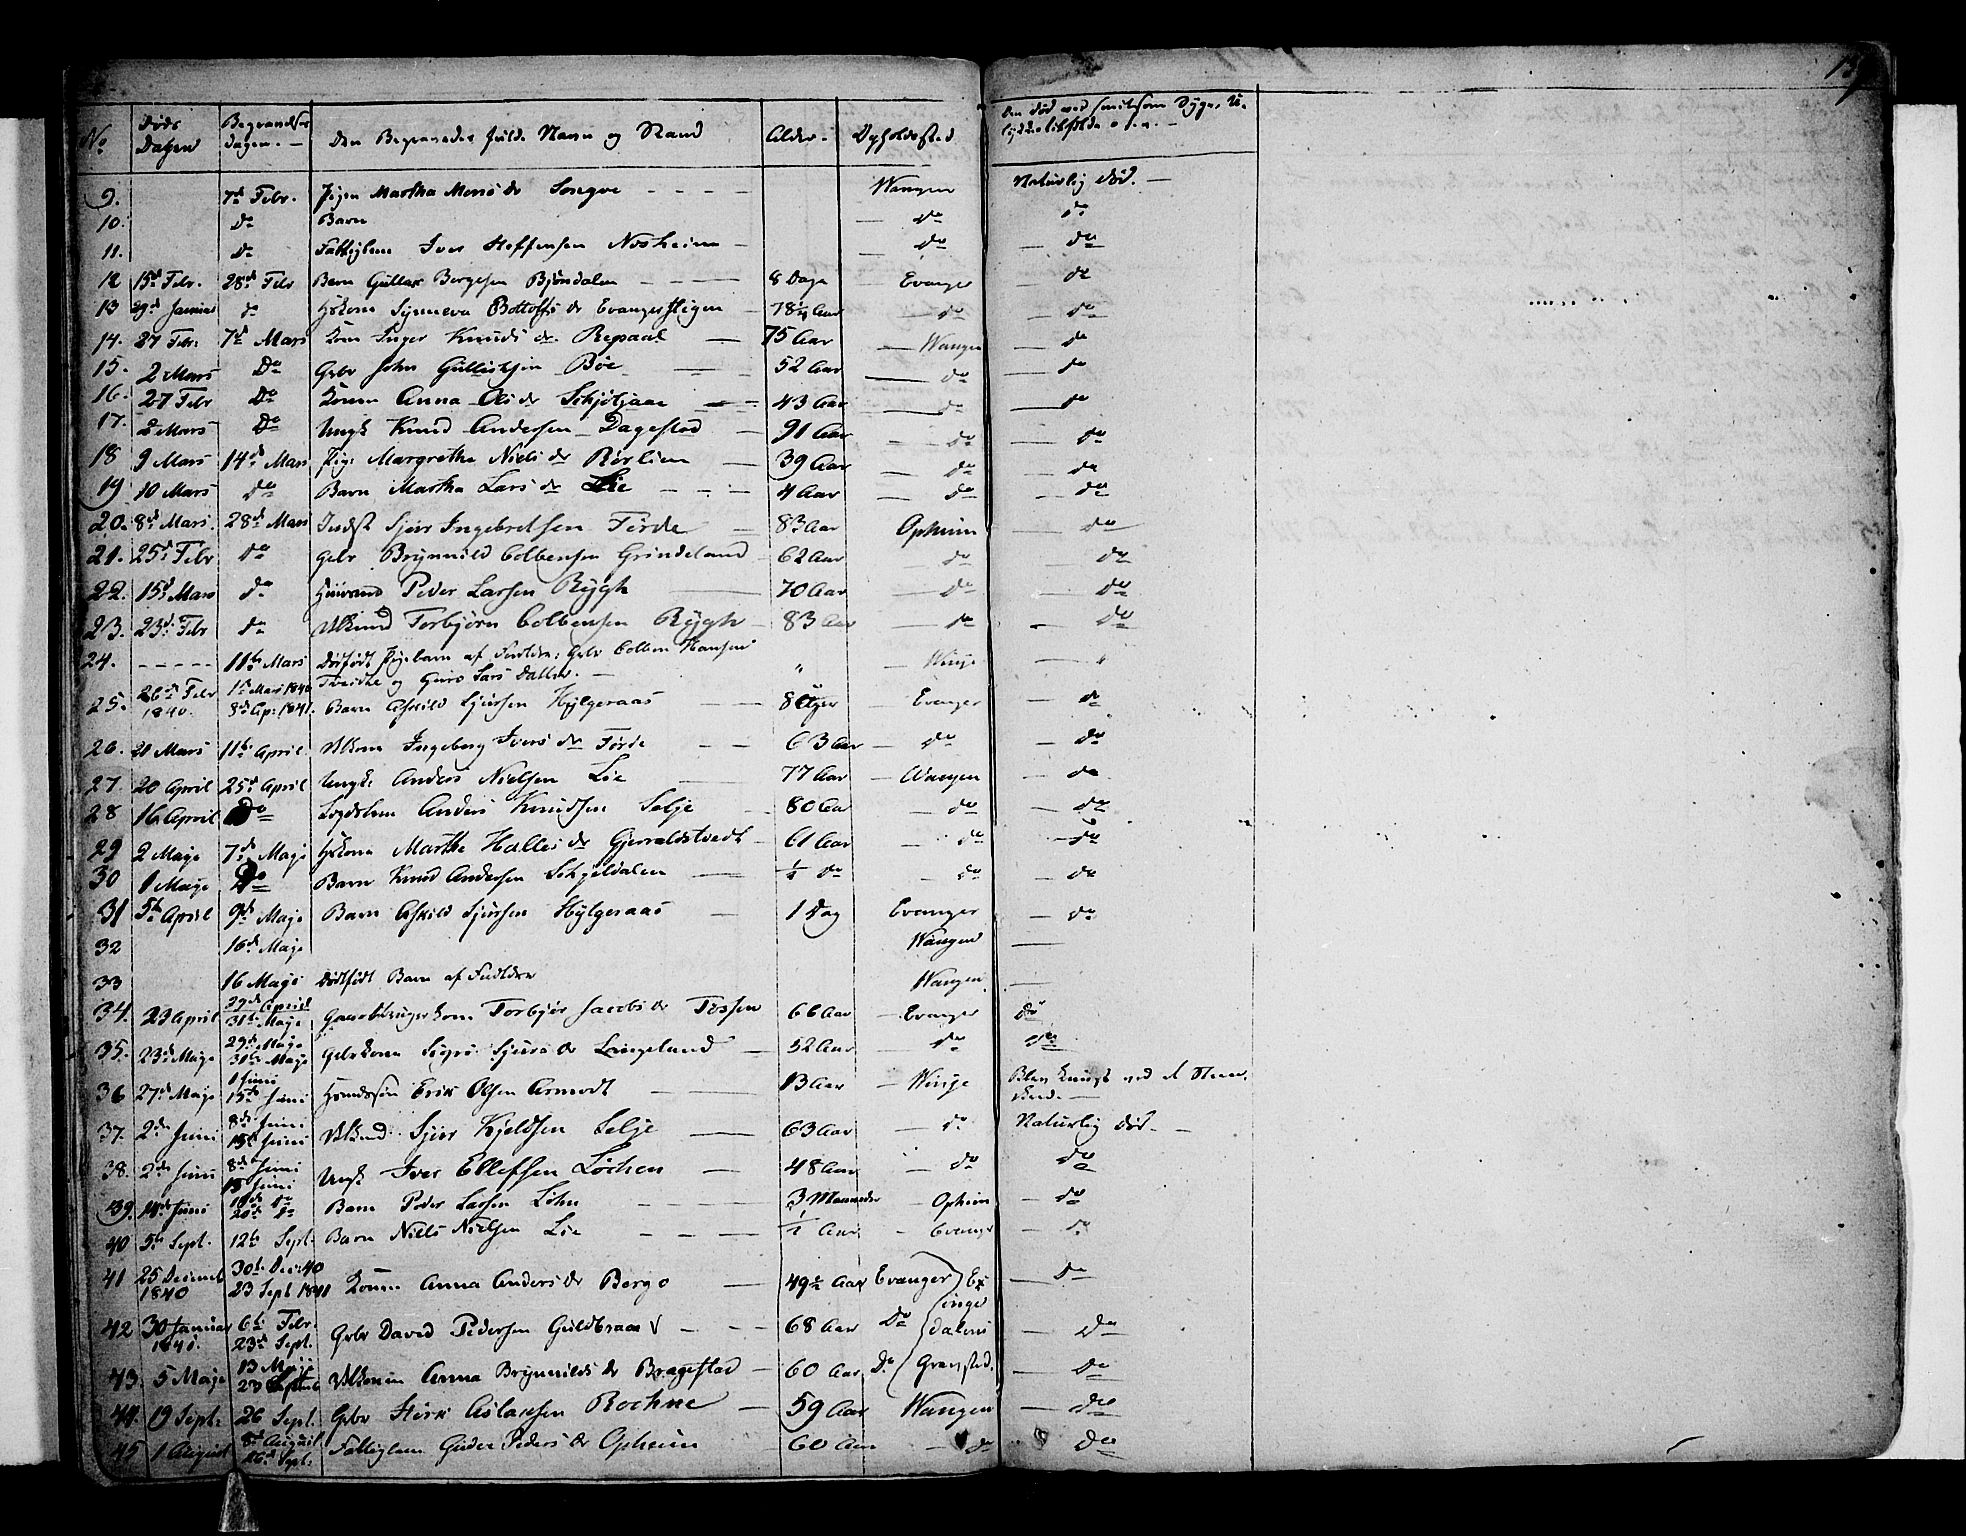 No Døds Dagen Begravelses Dagen. Den Begravedes fulde Navn og Stand Alder. Opholdssted Den død med smitsom Syge, U-
lykkestilfælde o.s.v.
9. 7d Febr. Pigen Martha Mons dr Wangen Naturlig død.
10. do Barn do do
11. do Fattiglem Iver Steffensen Nosheim do do
12 15d Febr. 28d Febr Barn Gullak Bergesen Bjøndalen 8 Dage Evanger do
13 29d Januar do Hskone Synneva Bottolfs dr Evangerstigen 78½ Aar do do
14. 27 Febr. 7d Mars Kone Inger Knuds dr Repaal 75 Aar Wangen do
15. 2 Mars Do Gbr John Gulliksen Bøe 52 Aar do do
16. 27 Febr Do Konen Anna Ols dr 43 Aar do do
17. 2 Mars Do Ungk Knud Andersen Dagestad 91 Aar do do
18 9 Mars 14d Mars Pige Margretha Niels dr Rørlien 39 Aar do do
19 10 Mars Do Barn Martha Lars dr Lie 4 Aar do do
20. 8d Mars. 28d Mars Indst Sjur Ingebretsen Førde 83 Aar Opheim do
21. 25d Febr do Gbr Brynnild Colbensen Grindeland 62 Aar do do
22. 15d Mars do Peder Larsen Rygh 70 Aar do do
23. 23d Febr do Torbjørn Colbensen Rygh 83 Aar do do
24. 11te Mars Dødfødt Pigebarn af Forældre: Gbr Colben Hansen " Winje "
Tveite og Guro Lars Datter.
25. 26d Febr 1840. 1d Mars 1840 8d Ap: 1841. Barn Askild Sjursen Hylgeraas 8 Uger Evanger do
26. 21 Mars 11te April Ingeborg Ivers dr Førde 63 Aar do do
27. 20 April 25d April Ungk: Anders Nielsen Lie 77 Aar Wangen do
28 16 April Do Anders Knudsen Selje 80 Aar do do
29 2 Maje 7d Maje Hskone Martha Halles dr Gjerraldstvedt 61 Aar do do
30 1 Maje Do Barn Knud Andersen Schjeldalen do do do
31 5te April 9d Maje Barn Askild Sjursen Hylgeraas 1 Dag Evanger do
32 16d Maje Wangen
33 16 Maje Dødfødt Barn af Forældre Wangen
34. 23 April 29d April 31te Maje Torbjør Jacobs dr Tøssen 66 Aar Evanger do
35. 23d Maje 29d Maje 31te Maje Gbrkone Sigri Sjurs dr Langeland 52 Aar do do
36 27d Maje 1 Juni 15d Juni Erik Olsen Armodt 13 Aar Winje Blev knust ved
37. 2d Juni 8d Juni 15d Juni Sjur Kjeldsen Selje 63 Aar do Naturlig død.
38. 2d Juni 8d Juni 15 Juni Ungk Iver Ellefsen Løchen 48 Aar do do
39. 14d Juni 19d do 20d do Barn Peder Larsen Løhn 3 Maaneder Opheim do
40 5te Sept. 12te Sept. Barn Niels Nielsen Lie Aar Evanger do
41 25 Decemb 1840 30te Dec: 40 23 Sept 1841 Konen Anna Anders dr Berge 49½ Aar Evanger Do
42 30 Januar 1841. 6te Febr. 23d Sept. Gbr David Pedersen Guldbraa 68 Aar Do Exingedalens Do
43. 5 Maje 13 Maje 23 Septemb Anna Brynnilds dr Bragestad 60 Aar Do Gravsted. Do
44. 19 Sept: 26 Sept. Gbr Størk Aslacsen Rockne 59 Aar Wangen Do
45 1 August 8d August 26d Sept. Fattiglem Guder Peders dr Opheim 60 Aar do Do